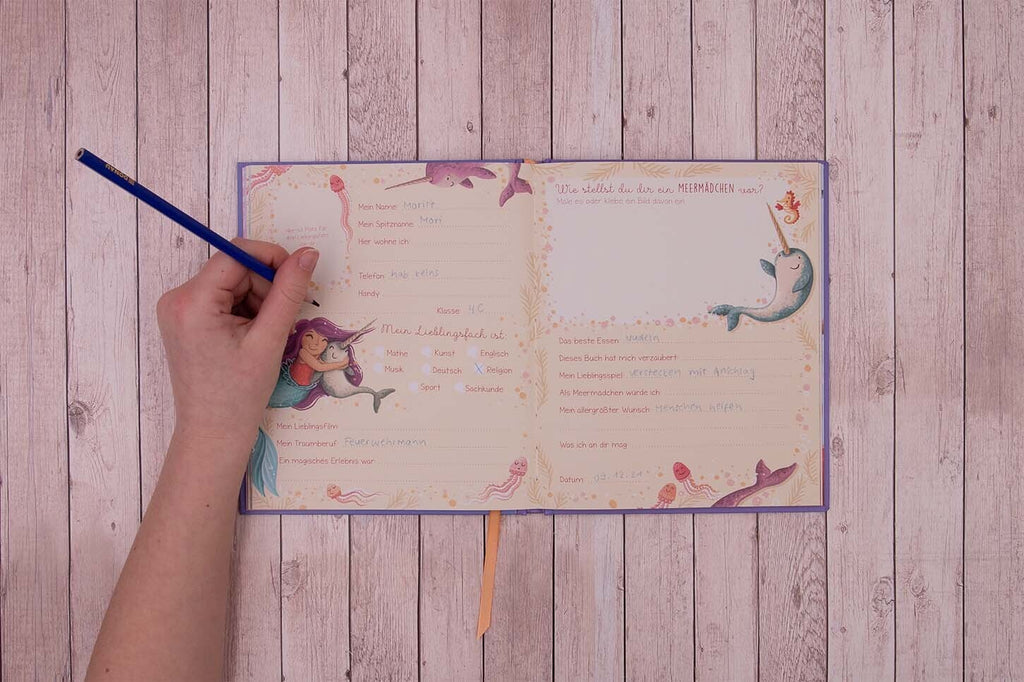 Mein Name Marit
Mein Spitzname Mari
Hier wohne ich
Telefon hab keins
Handy
Klasse 4C
Mein Lieblingsfach ist
Mathe Kunst Englisch
Musik Deutsch X Religion
Sport Sachkunde
Mein Lieblingsfilm
Mein Traumberuf Feuerwehrmann
Ein magisches Erlebnis war
Wie stellst du dir ein MEERMÄDCHEN vor?
Male es oder klebe ein Bild davon ein
Das beste Essen Nudeln
Dieses Buch hat mich verzaubert
Mein Lieblingsspiel verstecken mit Anschlag
Als Meermädchen würde ich
Mein allergrößter Wunsch Menschen helfen
Was ich an dir mag
Datum 09.12.21